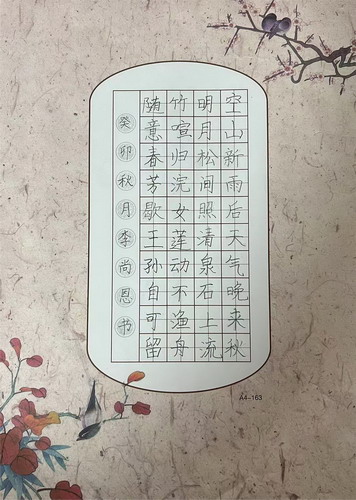 空山新雨后天气晚来秋
明月松间照清泉石上流
竹喧归浣女莲动不渔舟
随意春芳歇王孙自可留
癸卯秋月李尚恩书
A4-163